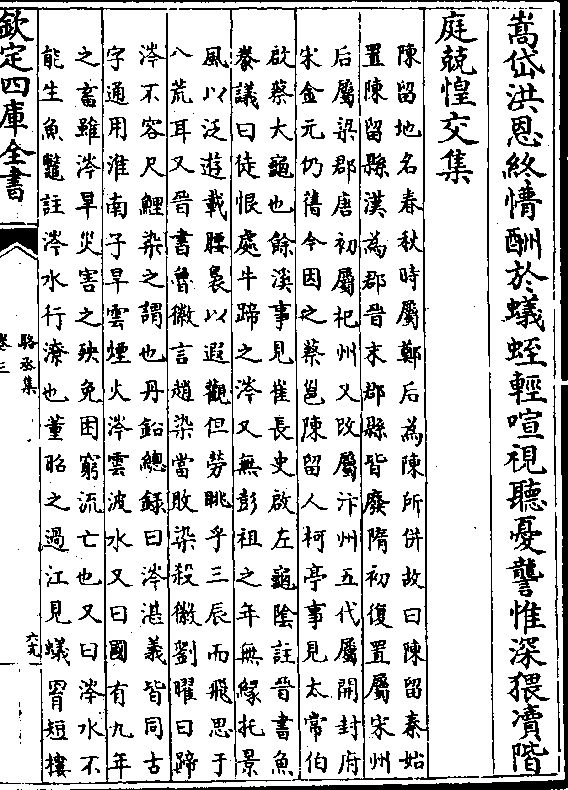 嵩岱洪恩終慵酬於蟻蛭輕喧視聽憂讋惟深猥凟階
庭兢惶交集
陳留地名春秋時屬鄭后為陳所併故曰陳留秦始
置陳留縣漢為郡晉末郡縣皆廢隋初復置屬宋州
后屬梁郡唐初屬祀州又改屬汴州五代屬開封府
宋金元仍舊今因之蔡邕陳留人柯亭事見太常伯
啟蔡大龜也餘溪事見崔長史啟左龜陰註晉書魚
豢議曰徒恨處牛蹄之涔又無彭祖之年無緣托景
風以泛遊載腰褭以遐觀但勞眺乎三辰而飛思于
八荒耳又晉書魯徽言趙染當敗染殺徽劉曜曰蹄
涔不容尺鯉染之謂也丹鉛總錄曰涔湛義皆同古
字通用淮南子旱雲煙火涔雲波水又曰國有九年
之畜雖涔旱災害之殃免困窮流亡也又曰涔水不
能生魚鼈註涔水行潦也董昭之過江見蟻胷短摟
欽定四庫全書
駱丞集
卷三
六